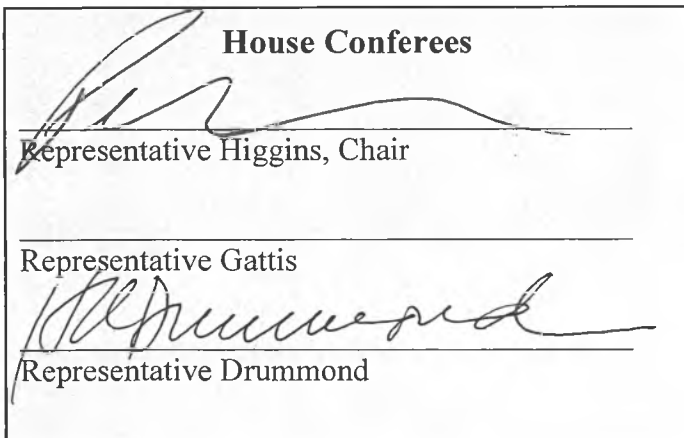 House Conferees
Representative Higgins, Chair
Representative Gattis
Drummond
Representative Drummond